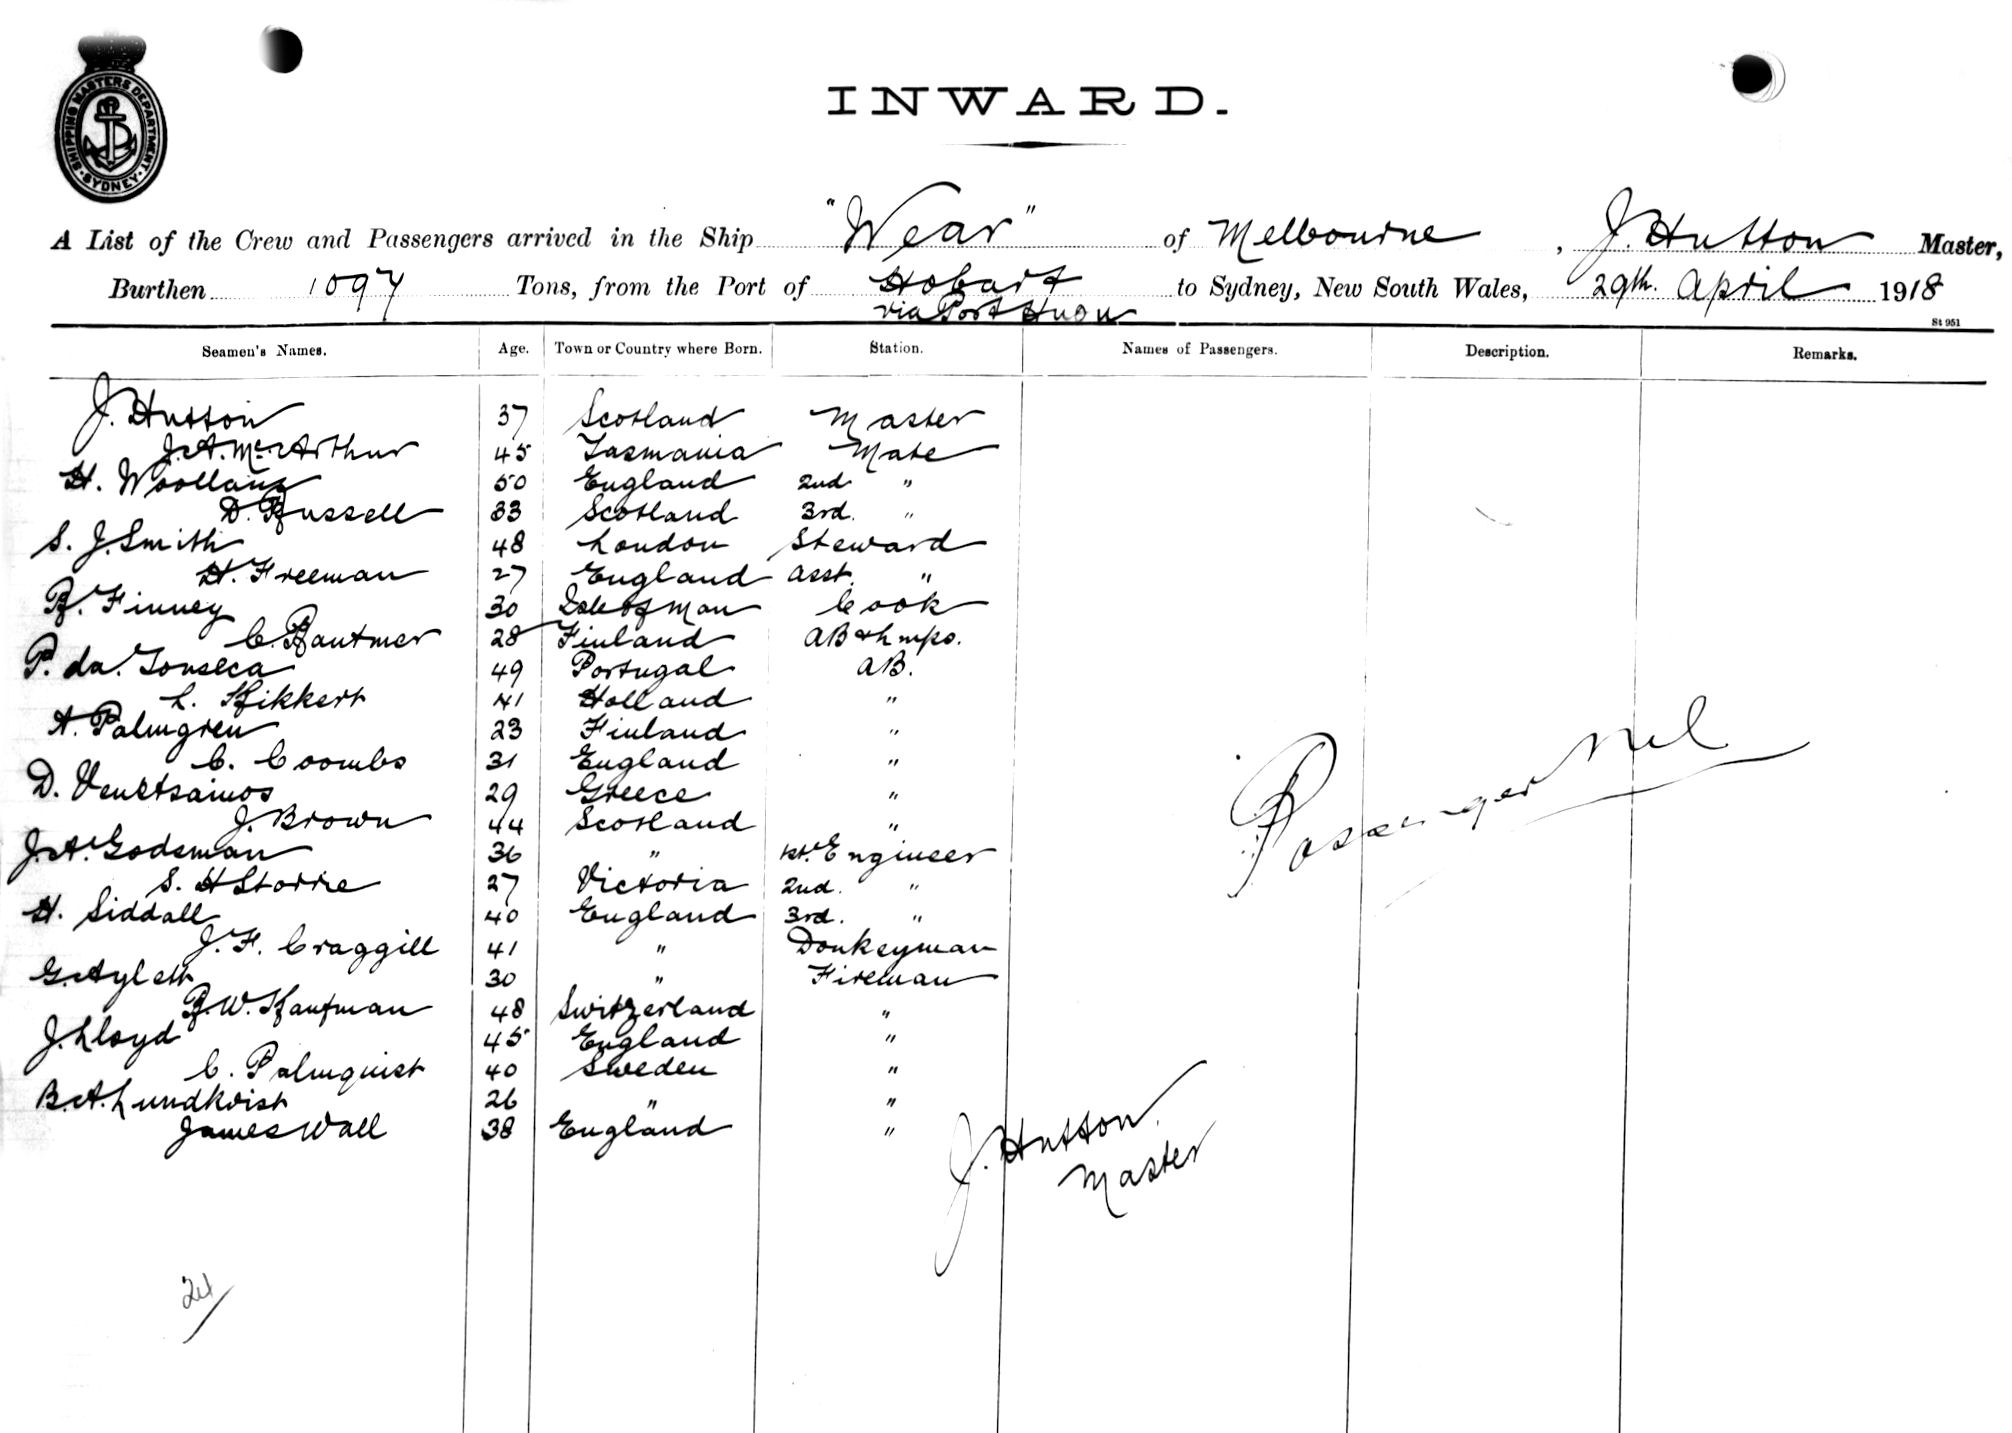 SHIPPING MASTERS DEPARTMENT
SYDNEY
INWARD.
A List of the Crew and Passengers arrived in the Ship "Wear" of Melbourne, J. Hutton Master,
Burthen 1097 Tons, from the Port of Hobart to Sydney, New South Wales, 29th. April 1918
via Port Huon
St 951
Seamen's Names. Age. Town or Country where Born. Station. Names of Passengers. Description. Remarks.
J. Hutton 37 Scotland Master
J.A. McArthur 45 Tasmania Mate
H. Woollams 50 England 2nd "
D. Russell 33 Scotland 3rd. "
S. J. Smith 48 London Steward
H. Freeman 27 England Asst. "
R. Finney 30 Isle of Man Cook
C. Rautmer 28 Finland AB & Lmps.
P. da. Fonseca 49 Portugal AB.
L. Kikkert 41 Holland "
A. Palmgren 23 Finland "
C. Coombs 31 England "
D. Venetsainos 29 Greece "
J. Brown 44 Scotland "
J.A. Godsman 36 " 1st. Engineer
S. H Storrie 27 Victoria 2nd. "
H. Siddall 40 England 3rd. "
J. F. Craggill 41 " Donkeyman
G. Ayleth 30 " Fireman
R. W. Kaufman 48 Switzerland "
J. Lloyd 45 England "
C. Palmquist 40 Sweden "
B.A. Lundkvist 26 " "
James Wall 38 England "
Passenger Nil
J. Hutton.
Master
24/